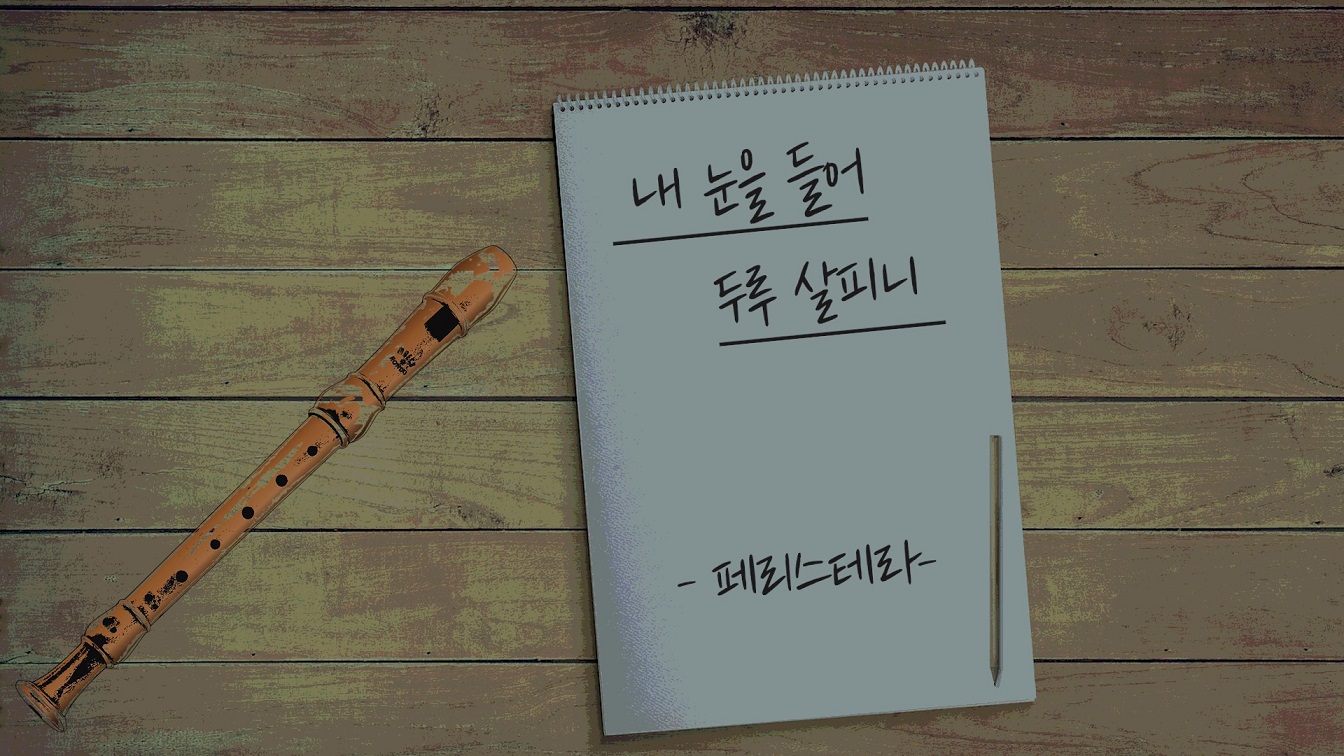 내 눈을 들어
두루 살피니
- 페리스테라-